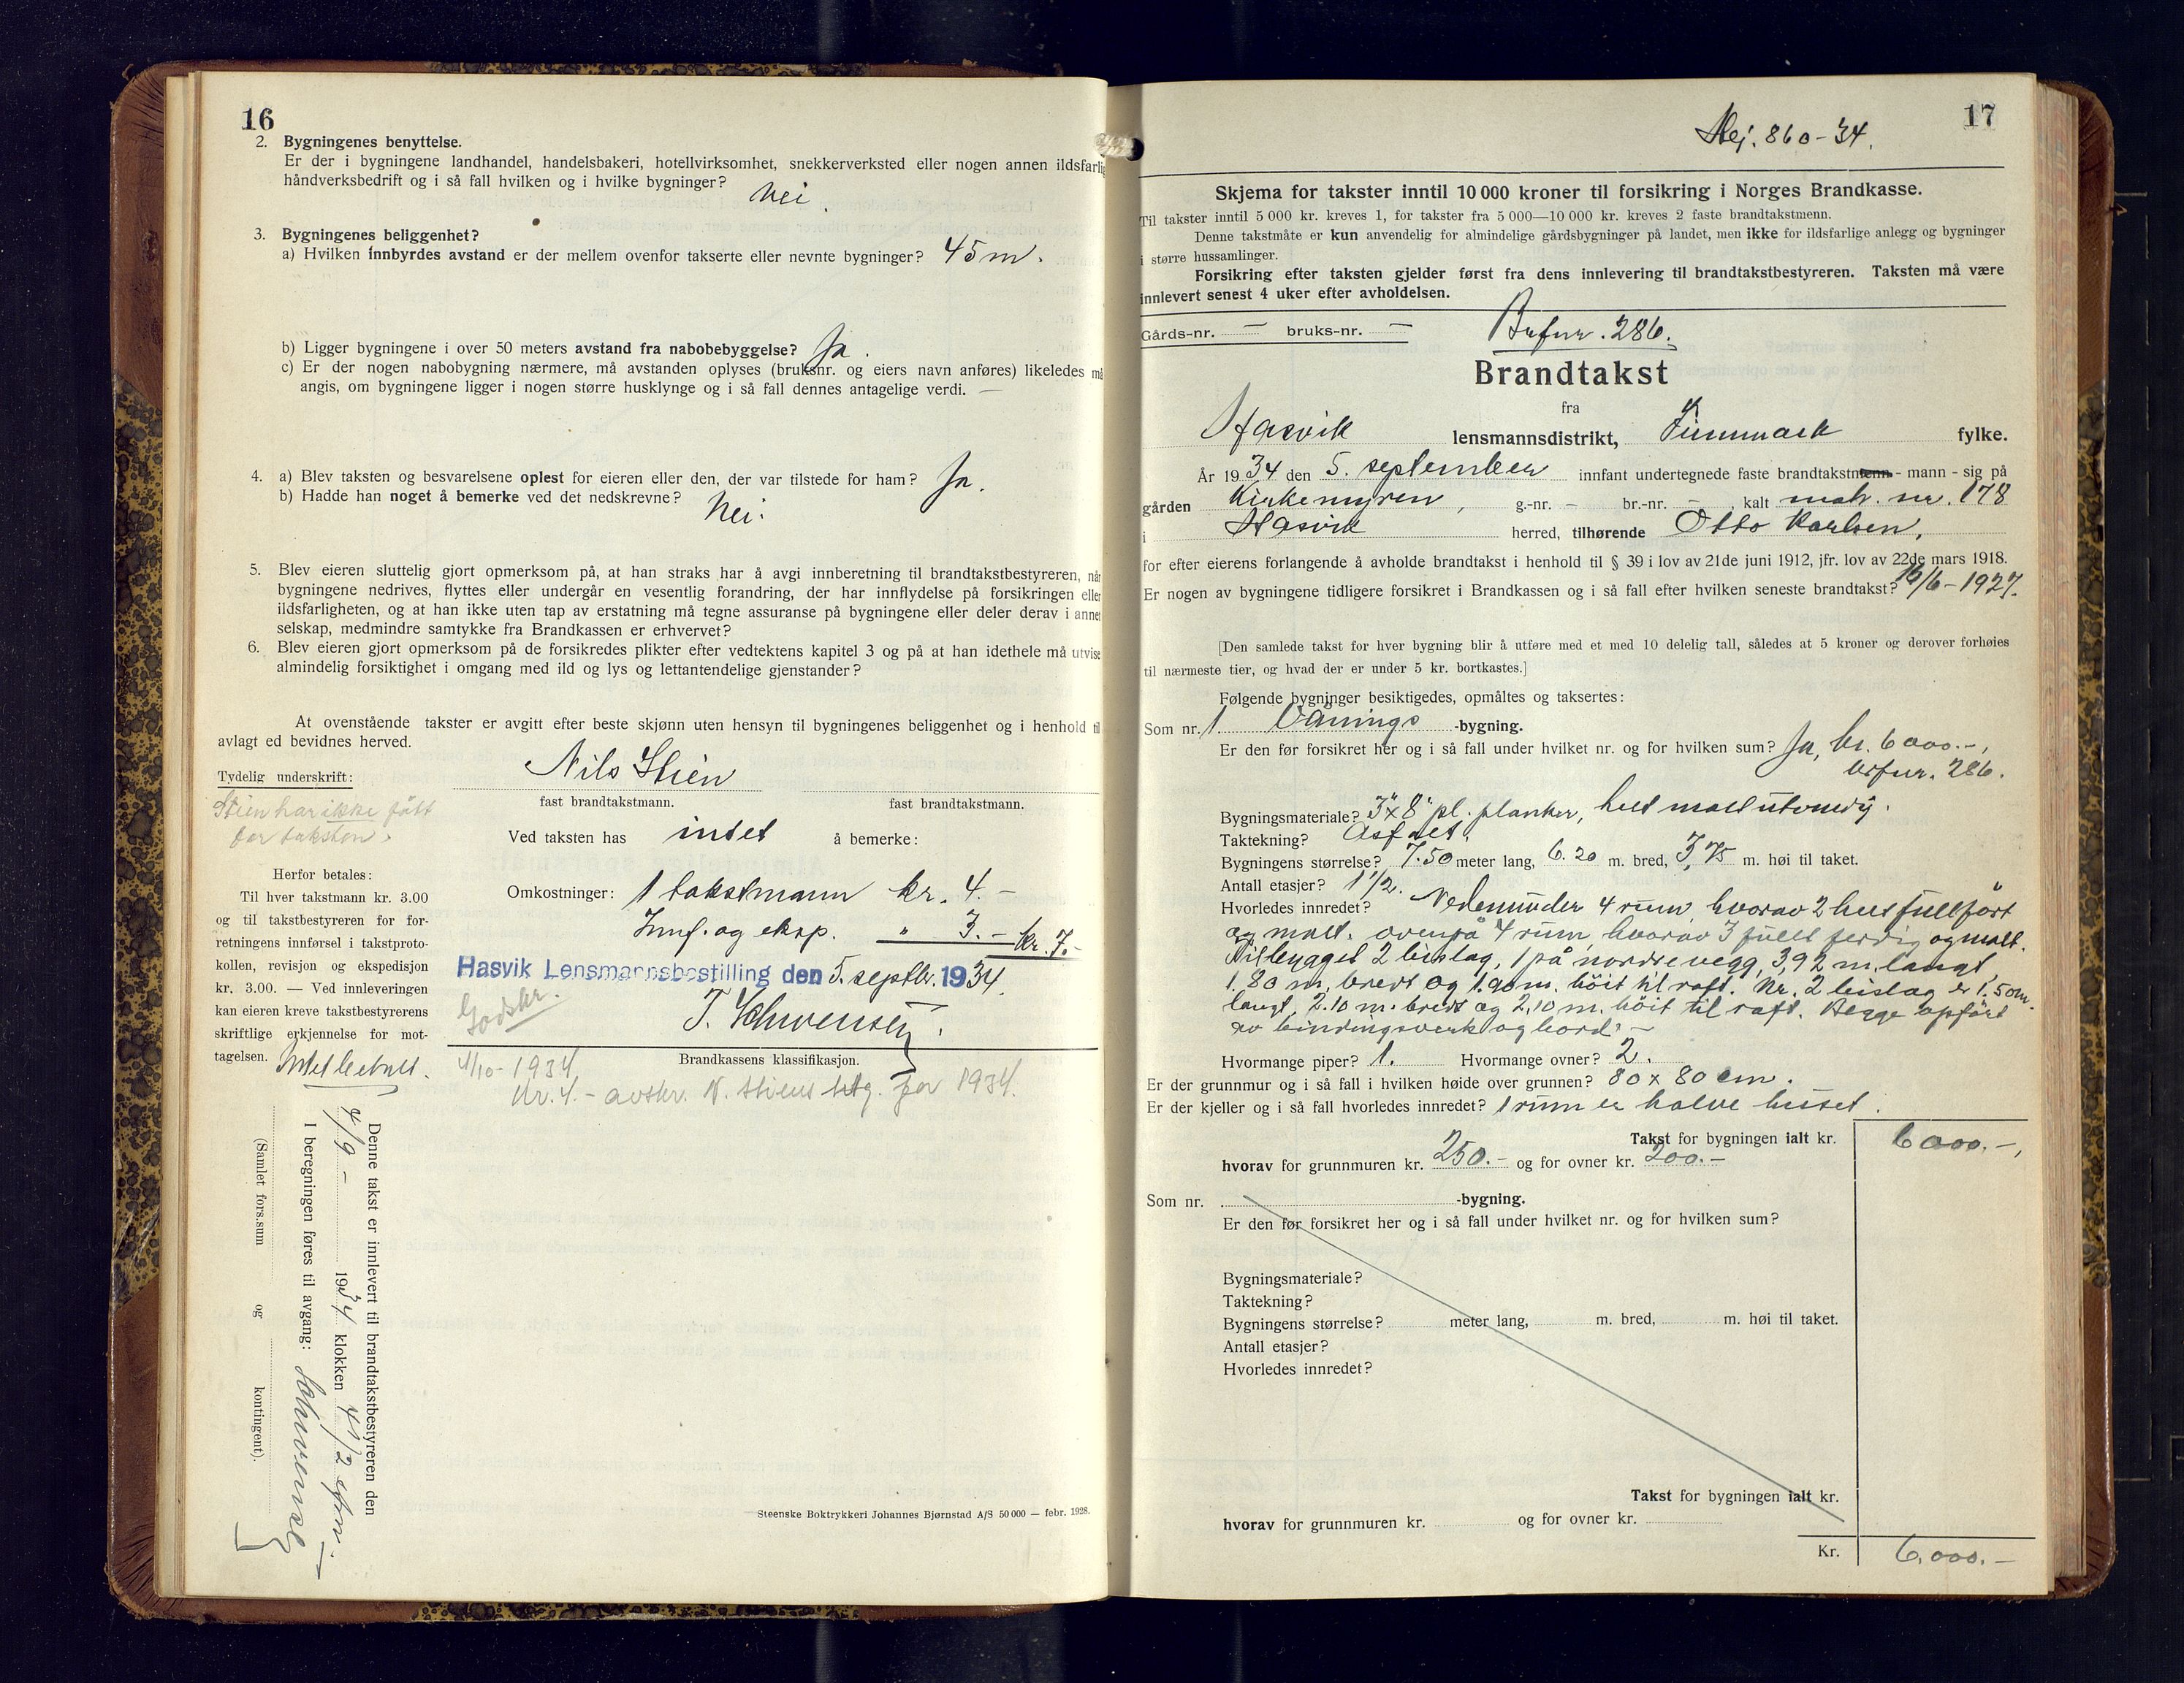 16
2. Bygningenes benyttelse.
Er der i bygningene landhandel, handelsbakeri, hotellvirksomhet, snekkerverksted eller nogen annen ildsfarlig
håndverksbedrift og i så fall hvilken og i hvilke bygninger? Nei.
3. Bygningenes beliggenhet?
a) Hvilken innbyrdes avstand er der mellem ovenfor takserte eller nevnte bygninger? 45 m.
b) Ligger bygningene i over 50 meters avstand fra nabobebyggelse? Ja.
c) Er der nogen nabobygning nærmere, må avstanden oplyses (bruksnr. og eiers navn anføres) likeledes må
angis, om bygningene ligger i nogen større husklynge og i så fall dennes antagelige verdi. —
4. a) Blev taksten og besvarelsene oplest for eieren eller den, der var tilstede for ham? Ja.
b) Hadde han noget å bemerke ved det nedskrevne? Nei.
5. Blev eieren sluttelig gjort opmerksom på, at han straks har å avgi innberetning til brandtakstbestyreren, når
bygningene nedrives, flyttes eller undergår en vesentlig forandring, der har innflydelse på forsikringen eller
ildsfarligheten, og at han ikke uten tap av erstatning må tegne assuranse på bygningene eller deler derav i annet
selskap, medmindre samtykke fra Brandkassen er erhvervet?
6. Blev eieren gjort opmerksom på de forsikredes plikter efter vedtektens kapitel 3 og på at han idethele må utvise
almindelig forsiktighet i omgang med ild og lys og lettantendelige gjenstander?
At ovenstående takster er avgitt efter beste skjønn uten hensyn til bygningenes beliggenhet og i henhold til
avlagt ed bevidnes herved.
Tydelig underskrift: Nils Stien
fast brandtakstmann. fast brandtakstmann.
Stien har ikke fått
for taksten.
Ved taksten has intet å bemerke:
Herfor betales:
Til hver takstmann kr. 3.00
og til takstbestyreren for for-
retningens innførsel i takstproto-
kollen, revisjon og ekspedisjon
kr. 3.00. — Ved innleveringen
kan eieren kreve takstbestyrerens
skriftlige erkjennelse for mot-
tagelsen. Intet betalt.
Omkostninger: 1 takstmann kr. 4.-
Innf. og eksp. " 3.- kr. 7.-
Hasvik Lensmannsbestilling den 5. septbr. 1934.
Godskr.
J. Schwensen.
Brandkassens klassifikasjon.
4/10-1934
kr. 4.- avskr. N. Stiens betg. for 1934.
Denne takst er innlevert til brandtakstbestyreren den
4/9 - 1934 klokken 4 1/2 efm.
I beregningen føres til avgang: Schwensen
(Samlet fors.sum og kontingent).
Steenske Boktrykkeri Johannes Bjørnstad A/S 50 000 — febr. 1928.
17
Nej. 860-34.
Skjema for takster inntil 10 000 kroner til forsikring i Norges Brandkasse.
Til takster inntil 5 000 kr. kreves 1, for takster fra 5 000—10 000 kr. kreves 2 faste brandtakstmenn.
Denne takstmåte er kun anvendelig for almindelige gårdsbygninger på landet, men ikke for ildsfarlige anlegg og bygninger
i større hussamlinger.
Forsikring efter taksten gjelder først fra dens innlevering til brandtakstbestyreren. Taksten må være
innlevert senest 4 uker efter avholdelsen.
Gårds-nr. — bruks-nr. — Brfnr. 286.
Brandtakst
fra
Hasvik lensmannsdistrikt, Finnmark fylke.
År 1934 den 5. september innfant undertegnede faste brandtakstmenn - mann - sig på
gården Kirkemyren, g.-nr. - br.-nr. - kalt matr. nr. 178
i Hasvik herred, tilhørende Otto Karlsen,
for efter eierens forlangende å avholde brandtakst i henhold til § 39 i lov av 21de juni 1912, jfr. lov av 22de mars 1918.
Er nogen av bygningene tidligere forsikret i Brandkassen og i så fall efter hvilken seneste brandtakst? 16/6-1927.
[Den samlede takst for hver bygning blir å utføre med et med 10 delelig tall, således at 5 kroner og derover forhøies
til nærmeste tier, og hvad der er under 5 kr. bortkastes.]
Følgende bygninger besiktigedes, opmåltes og taksertes:
Som nr. 1 Vånings -bygning.
Er den før forsikret her og i så fall under hvilket nr. og for hvilken sum? Ja, kr. 6000.-,
brfnr. 286.
Bygningsmateriale? 3"x8" pl. planker, helt malt utvendig.
Taktekning? Asfalt.
Bygningens størrelse? 7.50 meter lang, 6.20 m. bred, 3,75 m. høi til taket.
Antall etasjer? 1 1/2.
Hvorledes innredet? Nedenunder 4 rum, hvorav 2 helt fullført
og malt. ovenpå 4 rum, hvorav 3 fullt ferdig og malt.
Tilbygget 2 bislag, 1 på nordre vegg, 3,92 m. langt,
1.80 m. bredt og 1.90 m. höit til raft. Nr. 2 bislag er 1.50 m.
langt, 2.10 m. bredt og 2,10 m. höit til raft. Begge opført
av bindingsverk og bord. -
Hvormange piper? 1. Hvormange ovner? 2.
Er der grunnmur og i så fall i hvilken høide over grunnen? 80 x 80 cm.
Er der kjeller og i så fall hvorledes innredet? 1 rum er halve huset.
Takst for bygningen ialt kr. 6000.-,
hvorav for grunnmuren kr. 250.- og for ovner kr. 200.-
Som nr. -bygning.
Er den før forsikret her og i så fall under hvilket nr. og for hvilken sum?
Bygningsmateriale?
Taktekning?
Bygningens størrelse? meter lang, m. bred, m. høi til taket.
Antall etasjer?
Hvorledes innredet?
Takst for bygningen ialt kr.
hvorav for grunnmuren kr. og for ovner kr.
Kr. 6.000.-